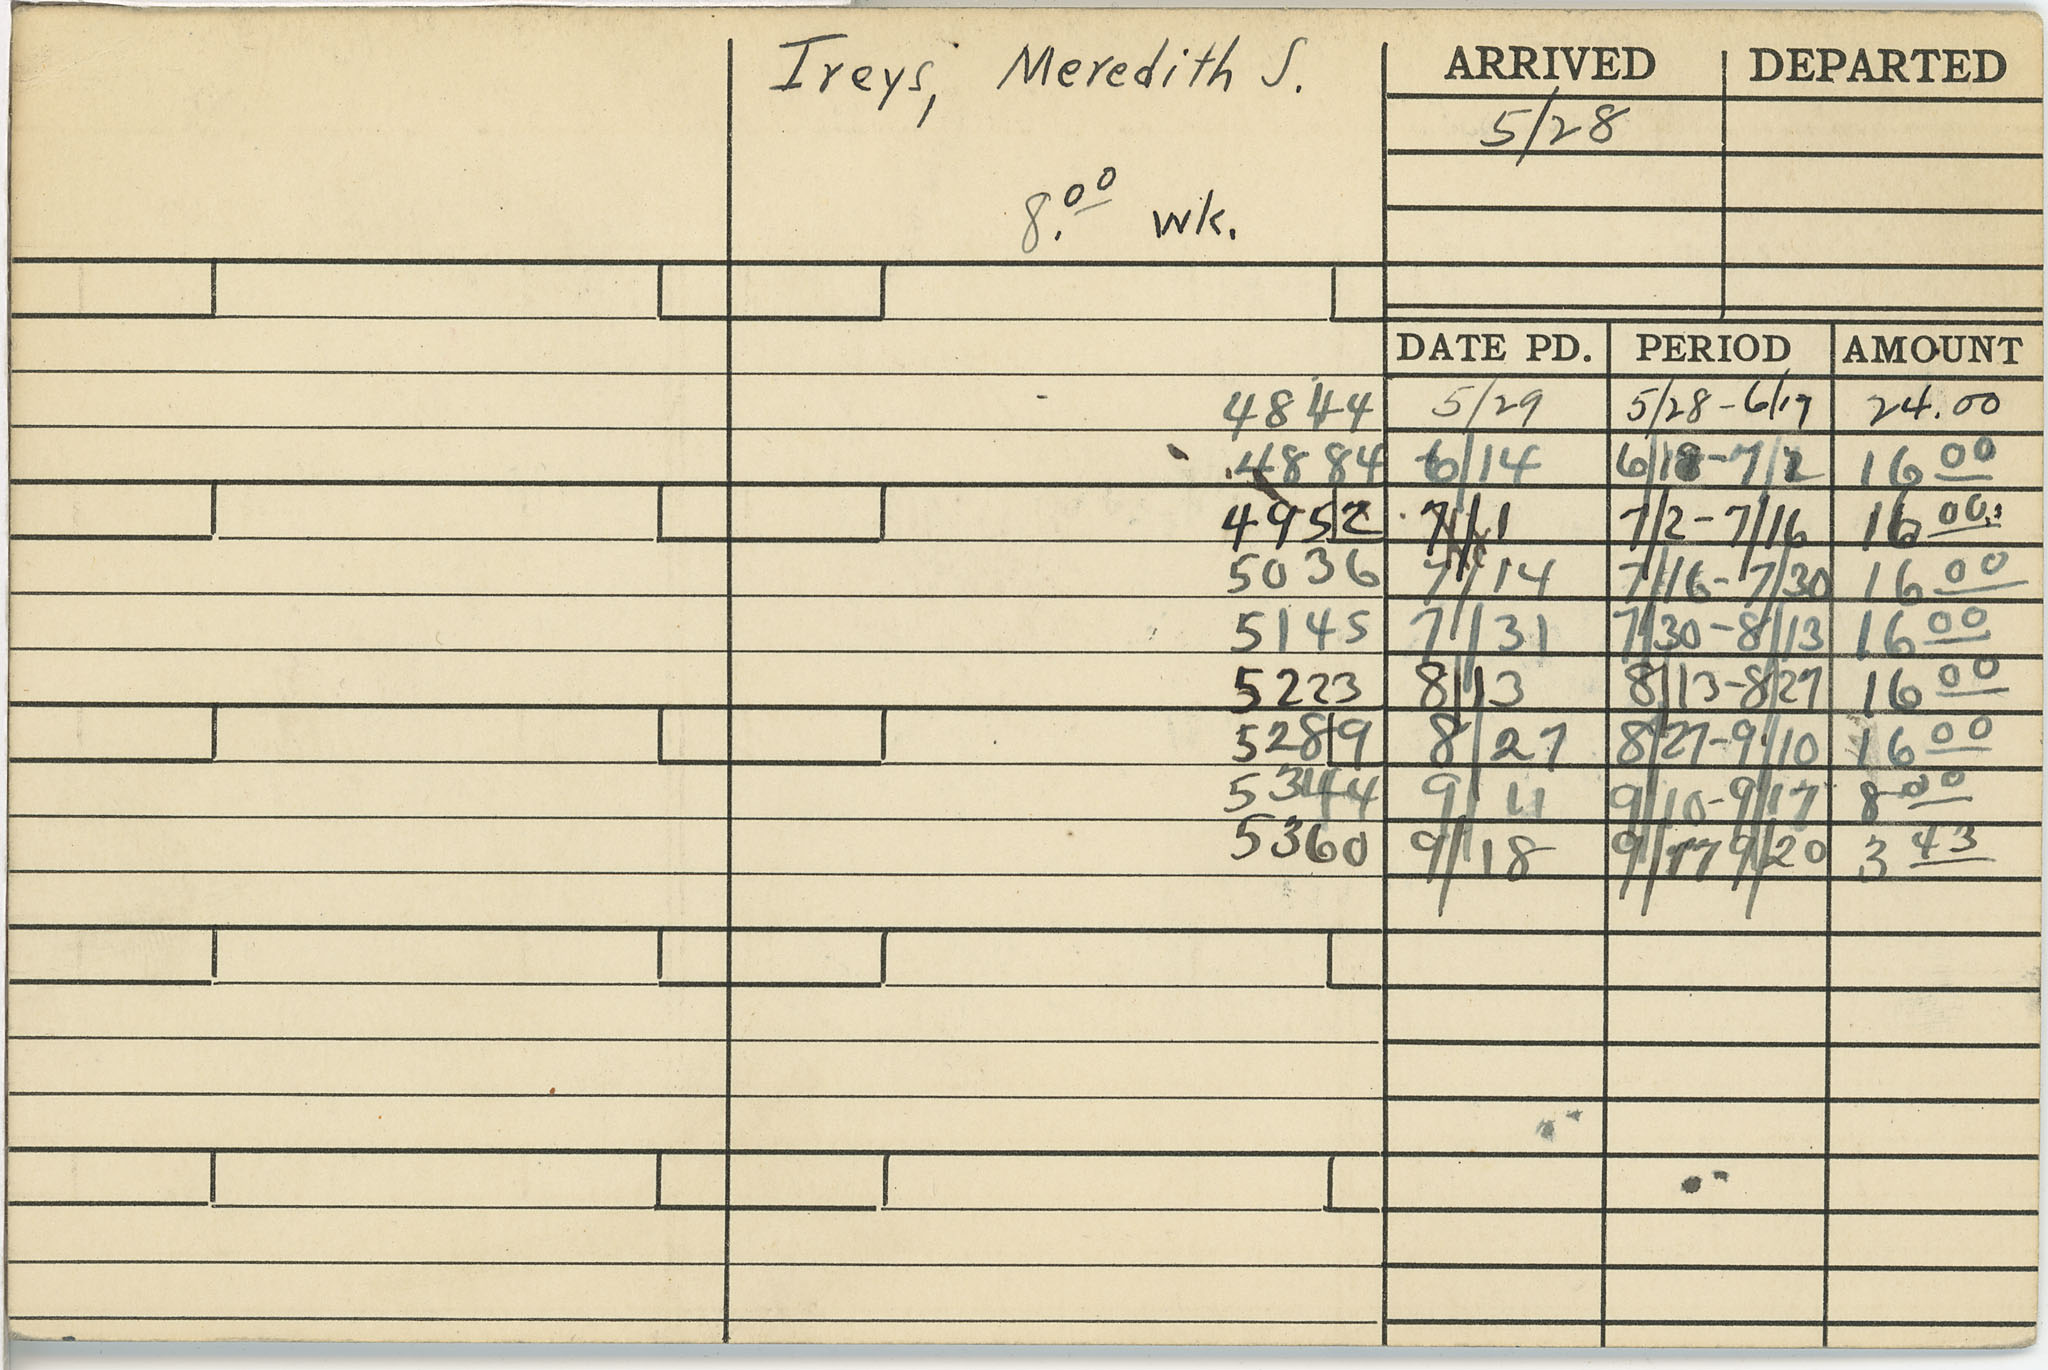 Ireys, Meredith S.
8.00 wk.
ARRIVED DEPARTED
5/28
DATE PD. PERIOD AMOUNT
4844 5/29 5/28-6/17 24.00
4884 6/14 6/18-7/2 16 00
4952 7/1 7/2-7/16 16 00
5036 7/14 7/16-7/30 16 00
5145 7/31 7/30-8/13 16 00
5223 8/13 8/13-8/27 16 00
5289 8/27 8/27-9/10 16 00
5344 9/11 9/10-9/17 8 00
5360 9/18 9/17 9/20 3 43